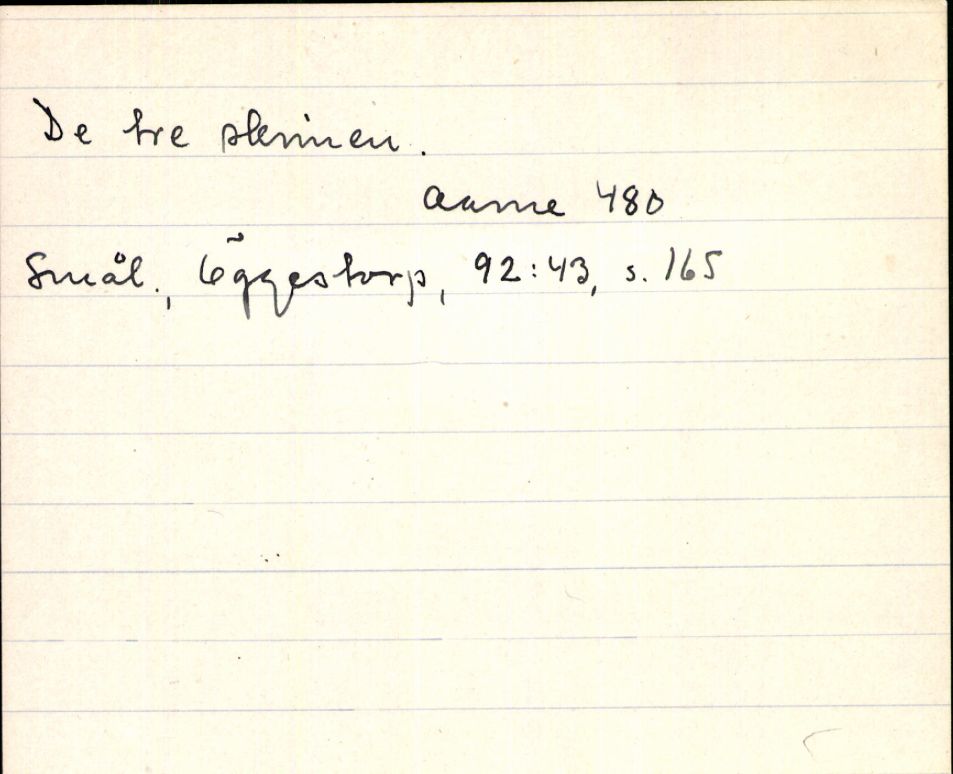 De tre skrinen.
Aarne 480
Smål., Öggestorp, 92:43, s. 165